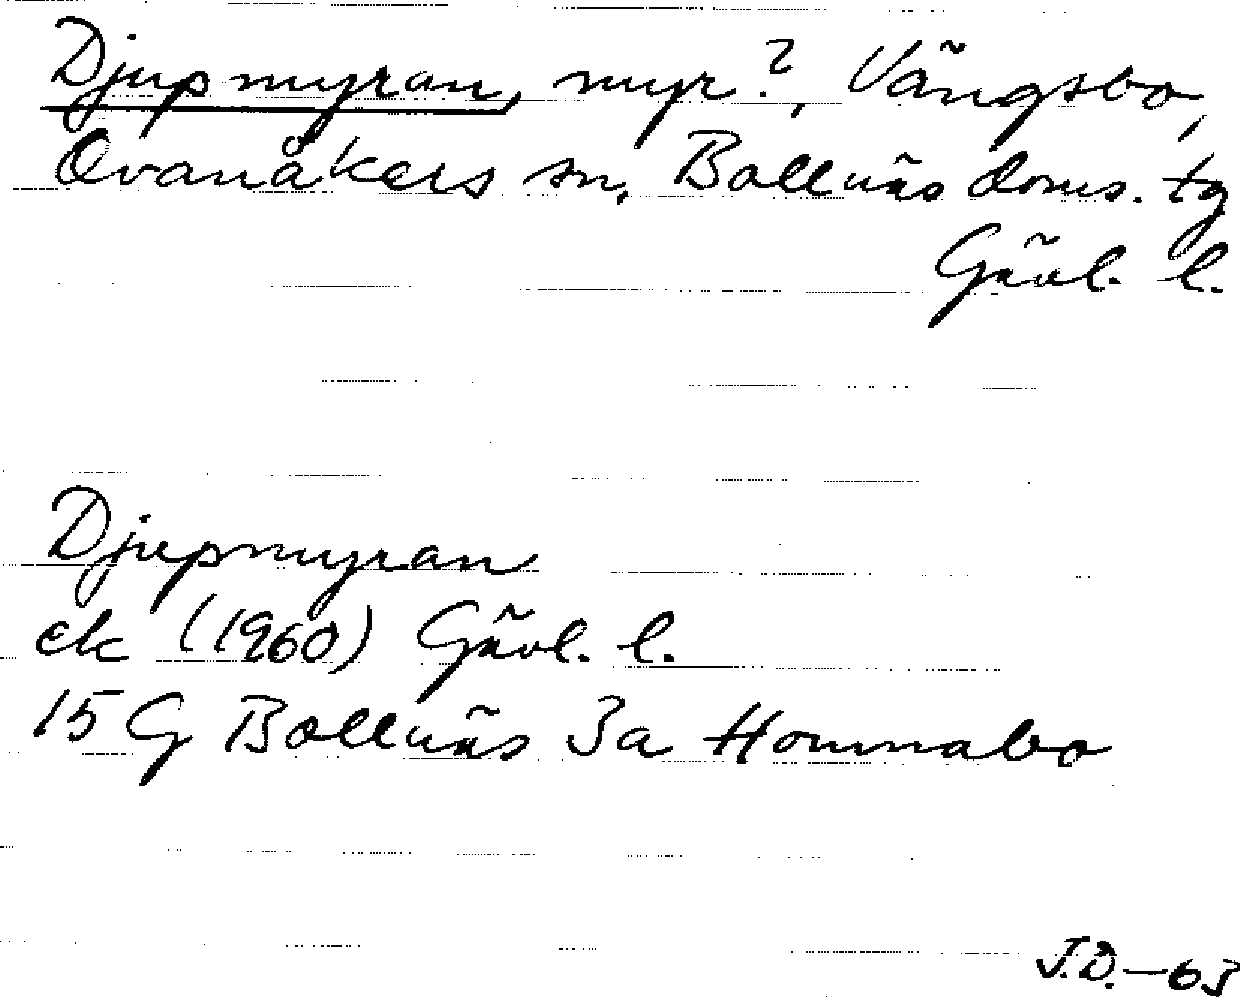 Djupmyran, myr?, Vängsbo,
Ovanåkers sn, Bollnäs doms. tg
Gävl. l.
Djupmyran
ek (1960) Gävl. l.
15 G Bollnäs 3a Hommabo
J.D.—63